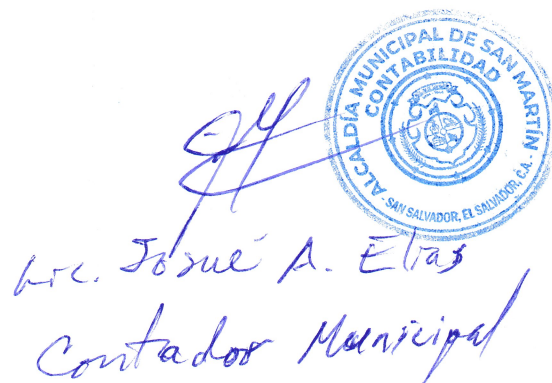 ALCALDÍA MUNICIPAL DE SAN MARTÍN
CONTABILIDAD
- SAN SALVADOR, EL SALVADOR, C.A. -
Lic. Josué A. Elias
Contador Municipal